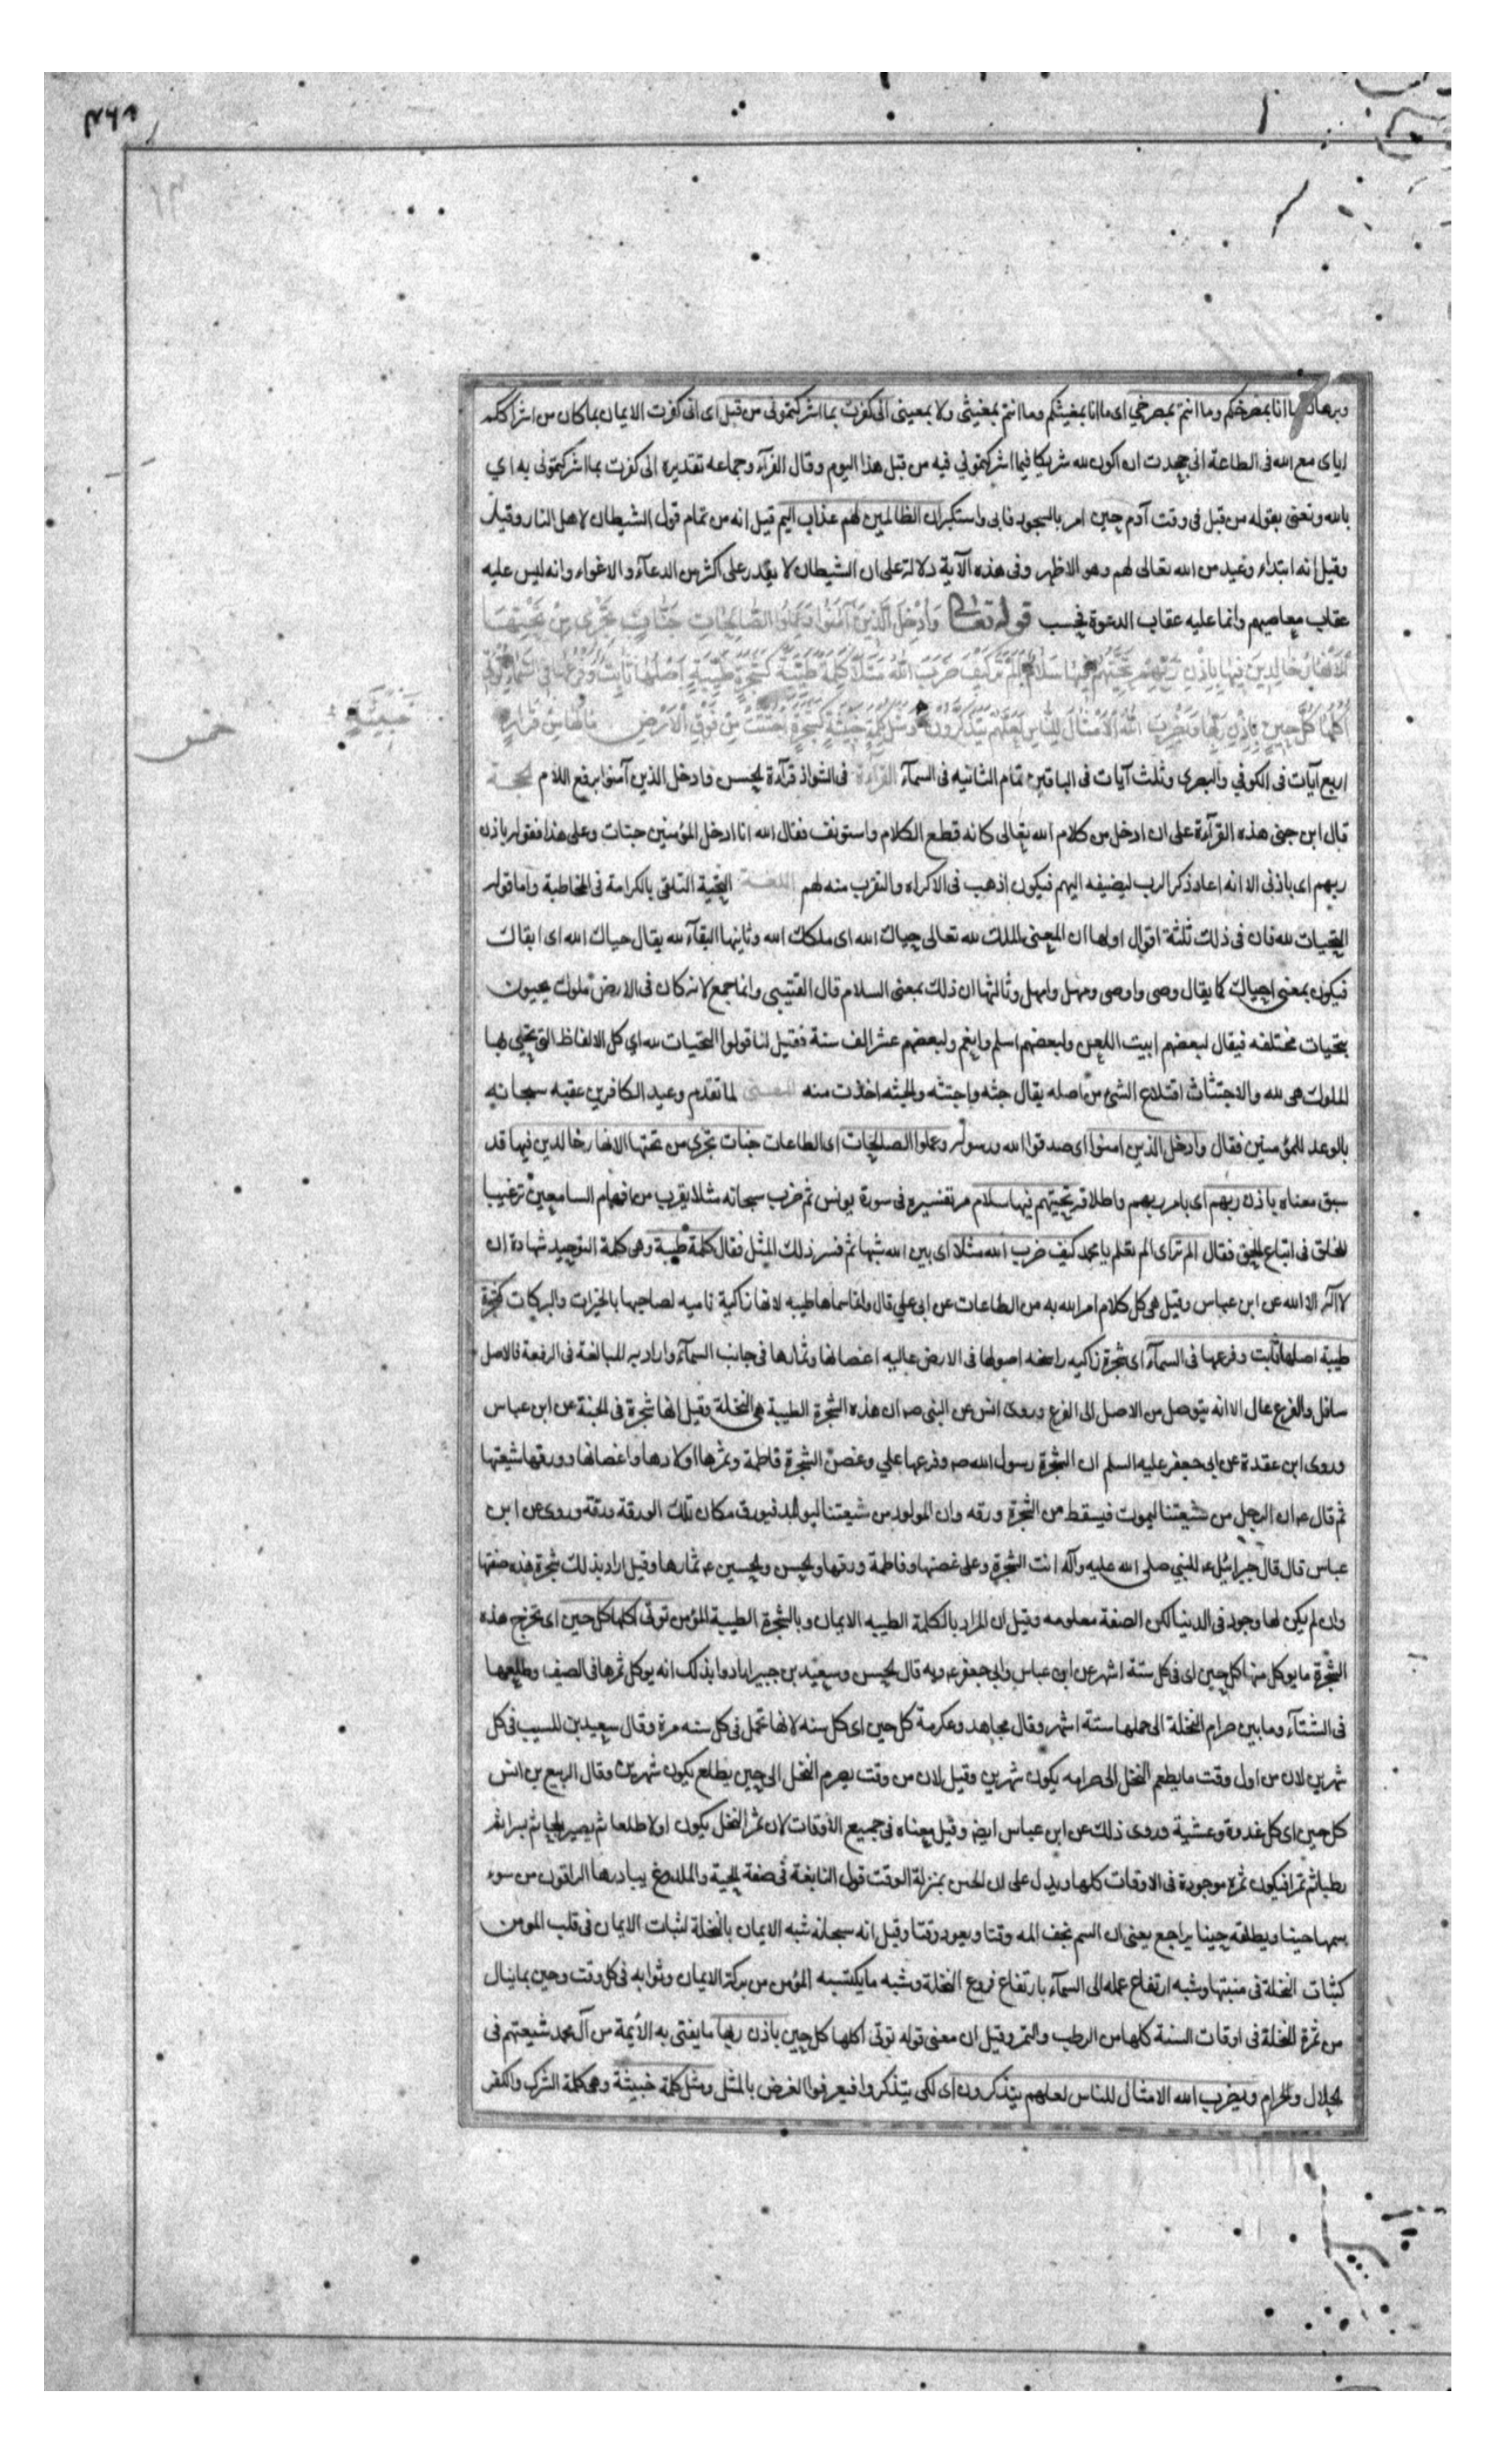 وبرهان ما انا بمصرخكم وما انتم بمصرخي اى ما انا بمغيثكم وما انتم بمغيثى ولا بمعينى انى كفرت بما اشركتمونى من قبل اى انى كفرت الايمان بما كان من اشراككم
اياى مع الله فى الطاعة انى جحدت ان اكون لله شريكا فيما اشركتمونى فيه من قبل هذا اليوم وقال الفرآء وجماعه تقديره انى كفرت بما اشركتمونى به اي
بالله وتعنى بقوله من قبل فى وقت آدم حين امر بالسجود فابى واستكبر ان الظالمين لهم عذاب اليم قيل انه من تمام قول الشيطان لاهل النار وقيل
وقيل انه ابتداء وعيد من الله تعالى لهم وهو الاظهر وفى هذه الآية دلالة على ان الشيطان لا يقدر على اكثر من الدعآء والاغواء وانه ليس عليه
عقاب معاصيهم وانما عليه عقاب الدعوة فحسب قوله تعالى وَاُدْخِلَ الَّذِينَ آمَنُوا وَعَمِلُوا الصَّالِحَاتِ جَنَّاتٍ تَجْرِى مِنْ تَحْتِهَا
الْاَنْهَارُ خَالِدِينَ فِيهَا بِاِذْنِ رَبِّهِمْ تَحِيَّتُهُمْ فِيهَا سَلَامٌ اَلَمْ تَرَ كَيْفَ ضَرَبَ اللهُ مَثَلًا كَلِمَةً طَيِّبَةً كَشَجَرَةٍ طَيِّبَةٍ اَصْلُهَا ثَابِتٌ وَفَرْعُهَا فِى السَّمَآءِ تُؤْتِى
اُكُلَهَا كُلَّ حِينٍ بِاِذْنِ رَبِّهَا وَيَضْرِبُ اللهُ الْاَمْثَالَ لِلنَّاسِ لَعَلَّهُمْ يَتَذَكَّرُونَ وَمَثَلُ كَلِمَةٍ خَبِيثَةٍ كَشَجَرَةٍ اجْتُثَّتْ مِنْ فَوْقِ الْاَرْضِ مَا لَهَا مِنْ قَرَارٍ
خَبِيثَةٍ
خمس
اربع آيات فى الكوفي والبصرى وثلث آيات فى الباقين تمام الثانيه فى السمآء القرآءة فى الشواذ قرآءة الحسن وادخل الذين آمنوا برفع اللام الحجـة
قال ابن جنى هذه القرآءة على ان ادخل من كلام الله تعالى كانه قطع الكلام واستونف فقال الله انا ادخل المؤمنين جنات وعلى هذا فقوله باذن
ربهم اى باذنى الا انه اعاد ذكر الرب ليضيفه اليهم فيكون اذهب فى الاكراه والتقرب منه لهم اللغـة التحية التلقى بالكرامة فى المخاطبة واما قوله
التحيات لله فان فى ذلك ثلثة اقوال اولها ان المعنى الملك لله تعالى حياك الله اى ملكك الله وثانيها البقآء لله يقال حياك الله اى ابقاك
فيكون بمعنى احياك كما يقال وصى واوصى ومهل وامهل وثالثها ان ذلك بمعنى السلام قال القتيبى وانما جمع لانه كان فى الارض ملوك يحيون
بتحيات مختلفه فيقال لبعضهم ابيت اللعن ولبعضهم اسلم وانعم ولبعضهم عش الف سنة فقيل لنا قولوا التحيات لله اي كل الالفاظ التى يحيى بها
الملوك هى لله والاجتثاث اقتلاع الشى من اصله يقال جثه واجتثه والجثه اخذت منه المعـنى لما تقدم وعيد الكافرين عقبه سبحانه
بالوعد للمؤمنين فقال وادخل الذين امنوا اى صدقوا الله ورسوله وعملوا الصالحات اى الطاعات جنات تجرى من تحتها الانهار خالدين فيها قد
سبق معناه باذن ربهم اى بامر ربهم واطلاقه تحيتهم فيها سلام مر تفسيره فى سورة يونس ثم ضرب سبحانه مثلا يقرب من افهام السامعين ترغيبا
للخلق فى اتباع الحق فقال الم تر اى الم تعلم يا محمد كيف ضرب الله مثلا اى بين الله شبها ثم فسر ذلك المثل فقال كلمة طيبة وهى كلمة التوحيد شهادة ان
لا اله الا الله عن ابن عباس وقيل هى كل كلام امر الله به من الطاعات عن ابى على قال وانما سماها طيبه لانها زاكية ناميه لصاحبها بالخيرات والبركات كشجرة
طيبة اصلها ثابت وفرعها فى السمآء اى شجرة زاكيه راسخه اصولها فى الارض عاليه اغصانها وثمارها فى جانب السمآء واراد به المبالغة فى الرفعة فالاصل
سافل والفرع عال الا انه يتوصل من الاصل الى الفرع وروى انس عن النبى صه ان هذه الشجرة الطيبة هى النخلة وقيل انها شجرة فى الجنة عن ابن عباس
وروى ابن عقدة عن ابى جعفر عليه السلم ان الشجرة رسول الله صه وفرعها علي وغصن الشجرة فاطمة وثمرها اولادها واغصانها وورقها شيعتها
ثم قال عه ان الرجل من شيعتنا ليموت فيسقط من الشجرة ورقه وان المولود من شيعتنا ليولد فيورق مكان تلك الورقة ورقة وروى عن ابن
عباس قال قال جبرائيل عه للنبي صلى الله عليه وآله انت الشجرة وعلى غصنها وفاطمة ورقها والحسن والحسين عه ثمارها وقيل اراد بذلك شجرة هذه صفتها
وان لم يكن لها وجود فى الدنيا لكن الصفة معلومه وقيل ان المراد بالكلمة الطيبه الايمان وبالشجرة الطيبة المؤمن توتى اكلها كل حين اى تخرج هذه
الشجرة ما يوكل منها كل حين اى فى كل ستة اشهر عن ابن عباس وابى جعفر عه وبه قال الحسن وسعيد بن جبير ارادوا بذلك انه يوكل ثمرها فى الصيف وطلعها
فى الشتآء وما بين صرام النخلة الى حملها ستة اشهر وقال مجاهد وعكرمة كل حين اى كل سنه لانها تحمل فى كل سنه مرة وقال سعيد بن المسيب فى كل
شهرين لان من اول وقت ما يطعم النخل الى صرامه يكون شهرين وقيل لان من وقت يصرم النخل الى حين يطلع يكون شهرين وقال الربيع بن انس
كل حين اى كل غدوة وعشية وروى ذلك عن ابن عباس ايضا وقيل معناه فى جميع الاوقات لان ثمر النخل يكون اولا طلعا ثم يصير بلحا ثم بسرا ثم
رطبا ثم تمرا فيكون ثمره موجودة فى الاوقات كلها ويدل على ان الحين بمنزلة الوقت قول النابغة فى صفة الحية والملدوغ يبادرها الراقون من سوء
سمها حينا ويطلقه حينا يراجع يعنى ان السم يخف المه وقتا ويعود وقتا وقيل انه سبحانه شبه الايمان بالنخلة لثبات الايمان فى قلب المومن
كثبات النخلة فى منبتها وشبه ارتفاع عمله الى السمآء بارتفاع فروع النخلة وشبه ما يكتسبه المؤمن من بركة الايمان وثوابه فى كل وقت وحين بما ينال
من ثمرة النخلة فى اوقات السنة كلها من الرطب والتمر وقيل ان معنى قوله توتى اكلها كل حين باذن ربها ما يفتى به الأيمة من آل محمد شيعتهم فى
الحلال والحرام ويضرب الله الامثال للناس لعلهم يتذكرون اى لكى يتذكروا فيعرفوا الغرض بالمثل ومثل كلمة خبيثة وهى كلمة الشرك والكفر